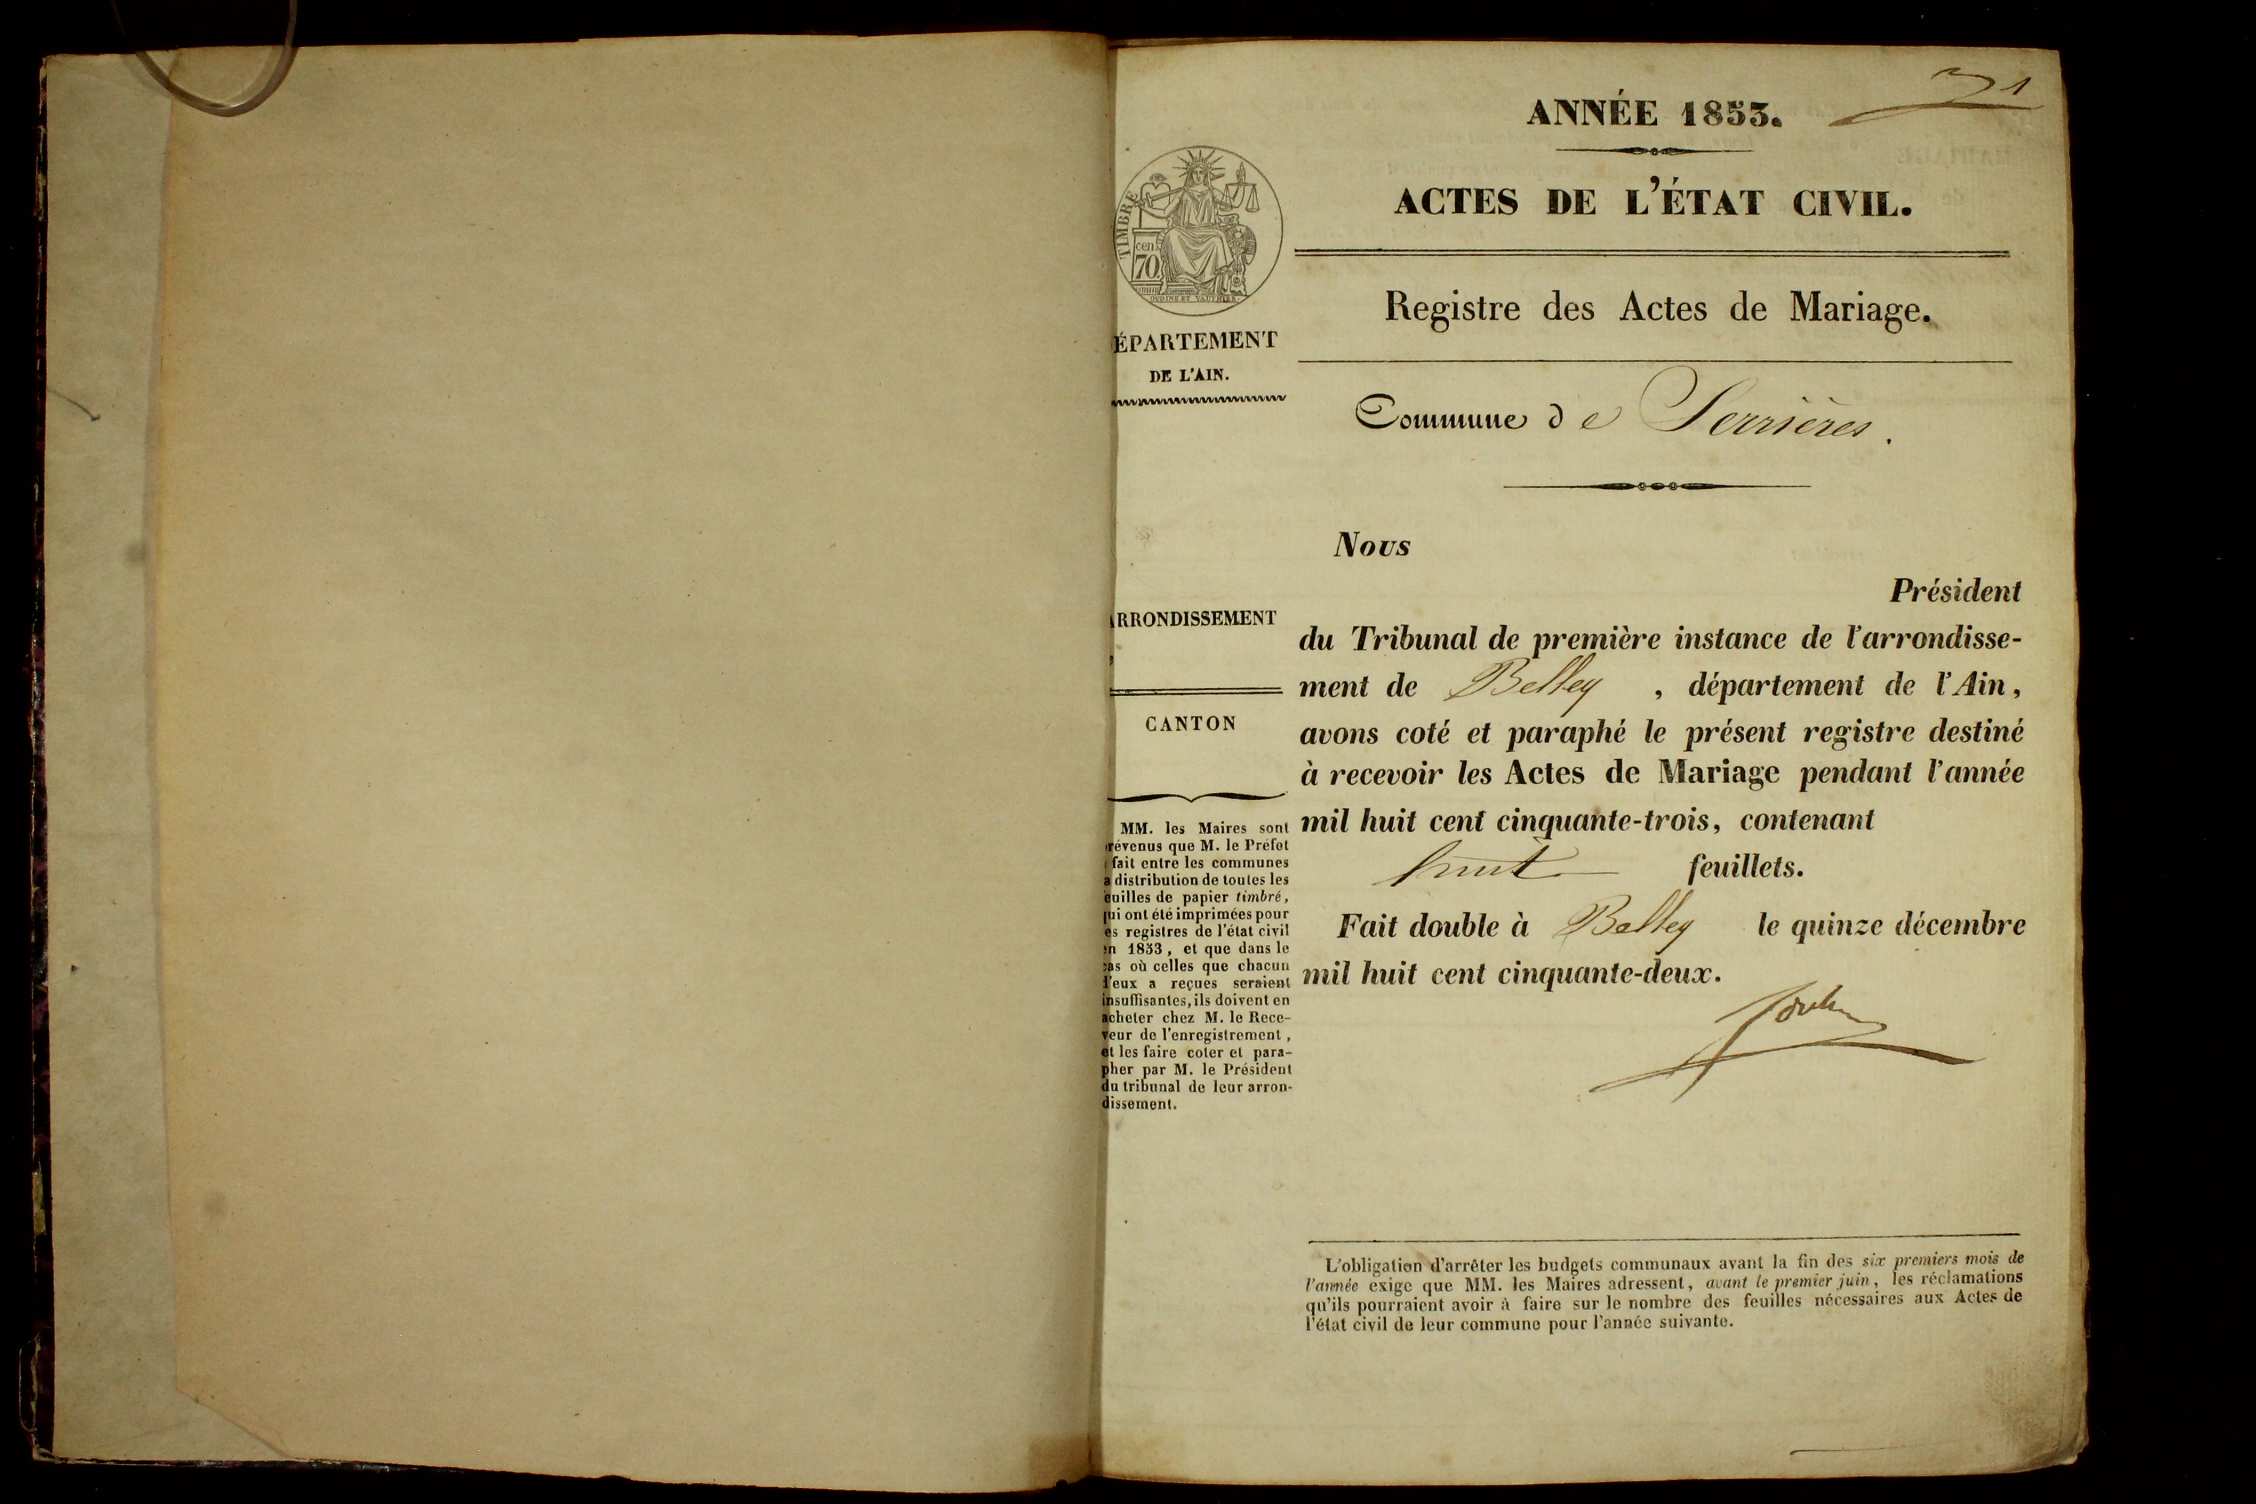 1
ANNÉE 1853.
ACTES DE L'ÉTAT CIVIL.
Registre des Actes de Mariage.
Commune de Serrières.
TIMBRE
cen
70
OUDINE ET VAUTHIER
ÉPARTEMENT
DE L'AIN.
RRONDISSEMENT
CANTON
MM. les Maires sont
révenus que M. le Préfet
fait entre les communes
a distribution de toutes les
euilles de papier timbré,
qui ont été imprimées pour
es registres de l'état civil
en 1853, et que dans le
cas où celles que chacun
d'eux a reçues seraient
insuffisantes, ils doivent en
acheter chez M. le Rece-
veur de l'enregistrement,
et les faire coter et para-
pher par M. le Président
du tribunal de leur arron-
dissement.
Nous
Président
du Tribunal de première instance de l'arrondisse-
ment de Belley , département de l'Ain,
avons coté et paraphé le présent registre destiné
à recevoir les Actes de Mariage pendant l'année
mil huit cent cinquante-trois, contenant
huit feuillets.
Fait double à Belley le quinze décembre
mil huit cent cinquante-deux.
L'obligation d'arrêter les budgets communaux avant la fin des six premiers mois de
l'année exige que MM. les Maires adressent, avant le premier juin, les réclamations
qu'ils pourraient avoir à faire sur le nombre des feuilles nécessaires aux Actes de
l'état civil de leur commune pour l'année suivante.